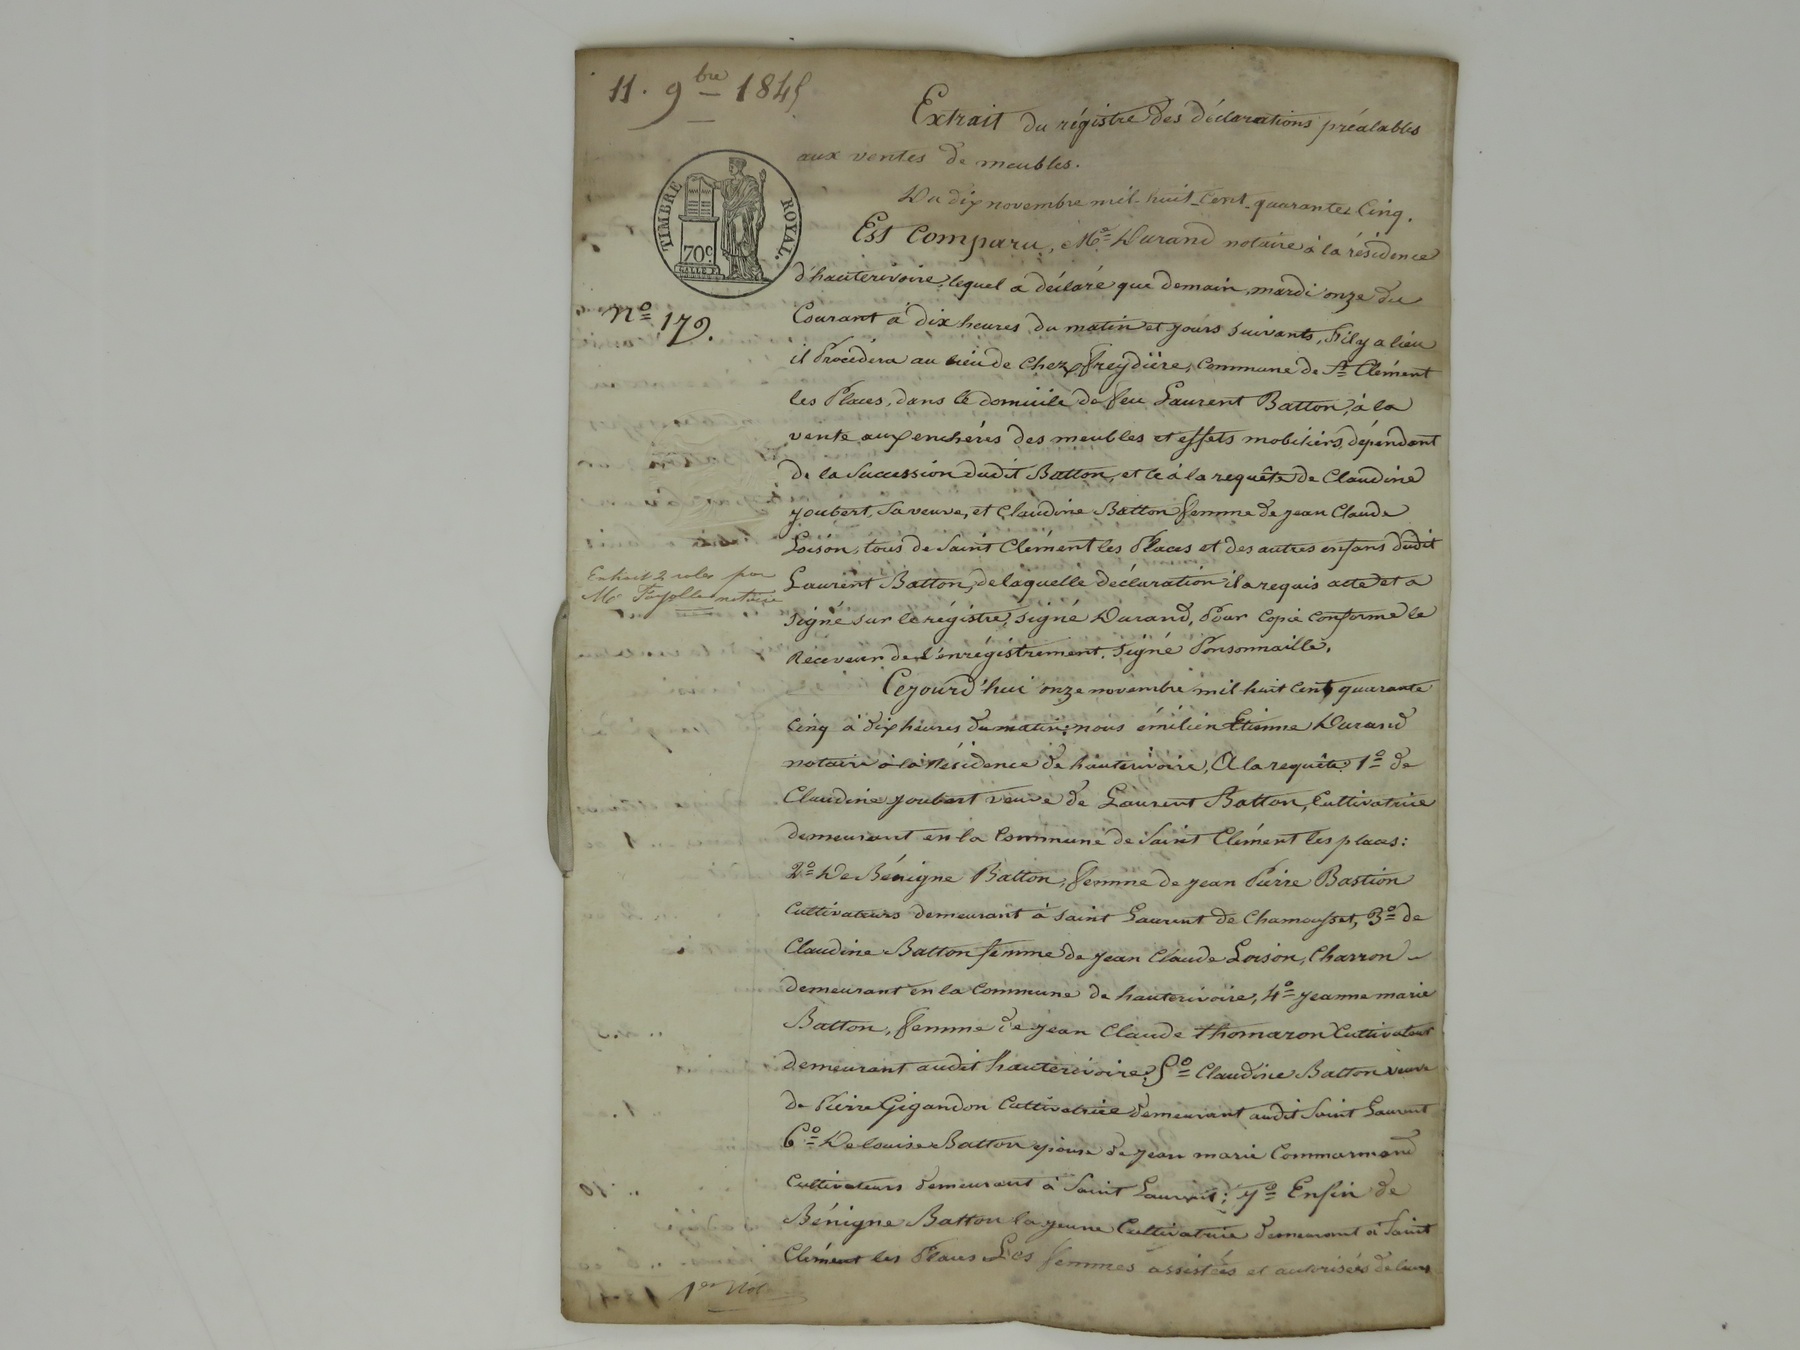 11. 9bre 1845
Extrait du régistre des déclarations préalables
aux ventes de meubles.
Du dix novembre mil-huit-cent-quarante Cinq.
TIMBRE ROYAL.
70c.
Est Comparu, Me Durand notaire à la résidence
d'hauterivoire, lequel a déclaré que demain, mardi onze du
No 179.
Courant à dix heures du matin et jours suivants, s'il y a lieu
il Procédera au lieu de Chez Freydière, Commune de St Clément
les Places, dans le domicile de feu Laurent Batton, à la
vente aux enchères des meubles et effets mobiliers, dépendant
de la Succession dudit Batton, et ce à la requête de Claudine
Joubert, Sa veuve, et Claudine Batton femme de jean Claude
Loison, tous de Saint Clément les Places et des autres enfans dudit
Extrait 2 roles par
Me Fayolle notaire
Laurent Batton, de laquelle déclaration il a requis acte et a
Signé sur le régistre, signé Durand, Pour Copie Conforme le
Receveur de l'enrégistrement. Signé Ponsonnaille.
Cejourd'hui onze novembre mil huit cent quarante
Cinq à dix heures du matin; nous émilien Etienne Durand
notaire à la Résidence de hauterivoire, A la requête 1o de
Claudine joubert veuve de Laurent Batton, Cultivatrice
demeurant en la Commune de Saint Clément les places:
2o De Bénigne Batton, femme de jean Pierre Bastion
Cultivateurs demeurant à saint Laurent de Chamousset, 3o de
Claudine Batton femme de jean Claude Loison, Charron
demeurant en la Commune de hauterivoire, 4o jeanne marie
Batton, femme de jean Claude thomaron Cultivateur
demeurant audit hauterivoire; 5o Claudine Batton veuve
de Pierre Gigandon Cultivatrice demeurant audit Saint Laurent
6o De louise Batton épouse de jean marie Commarmond
Cultivateurs demeurant à Saint Laurent; 7o Enfin de
Bénigne Batton la jeune Cultivatrice demeurant à Saint
Clément les Places Les femmes assistées et autorisées de leurs
1er Rôle